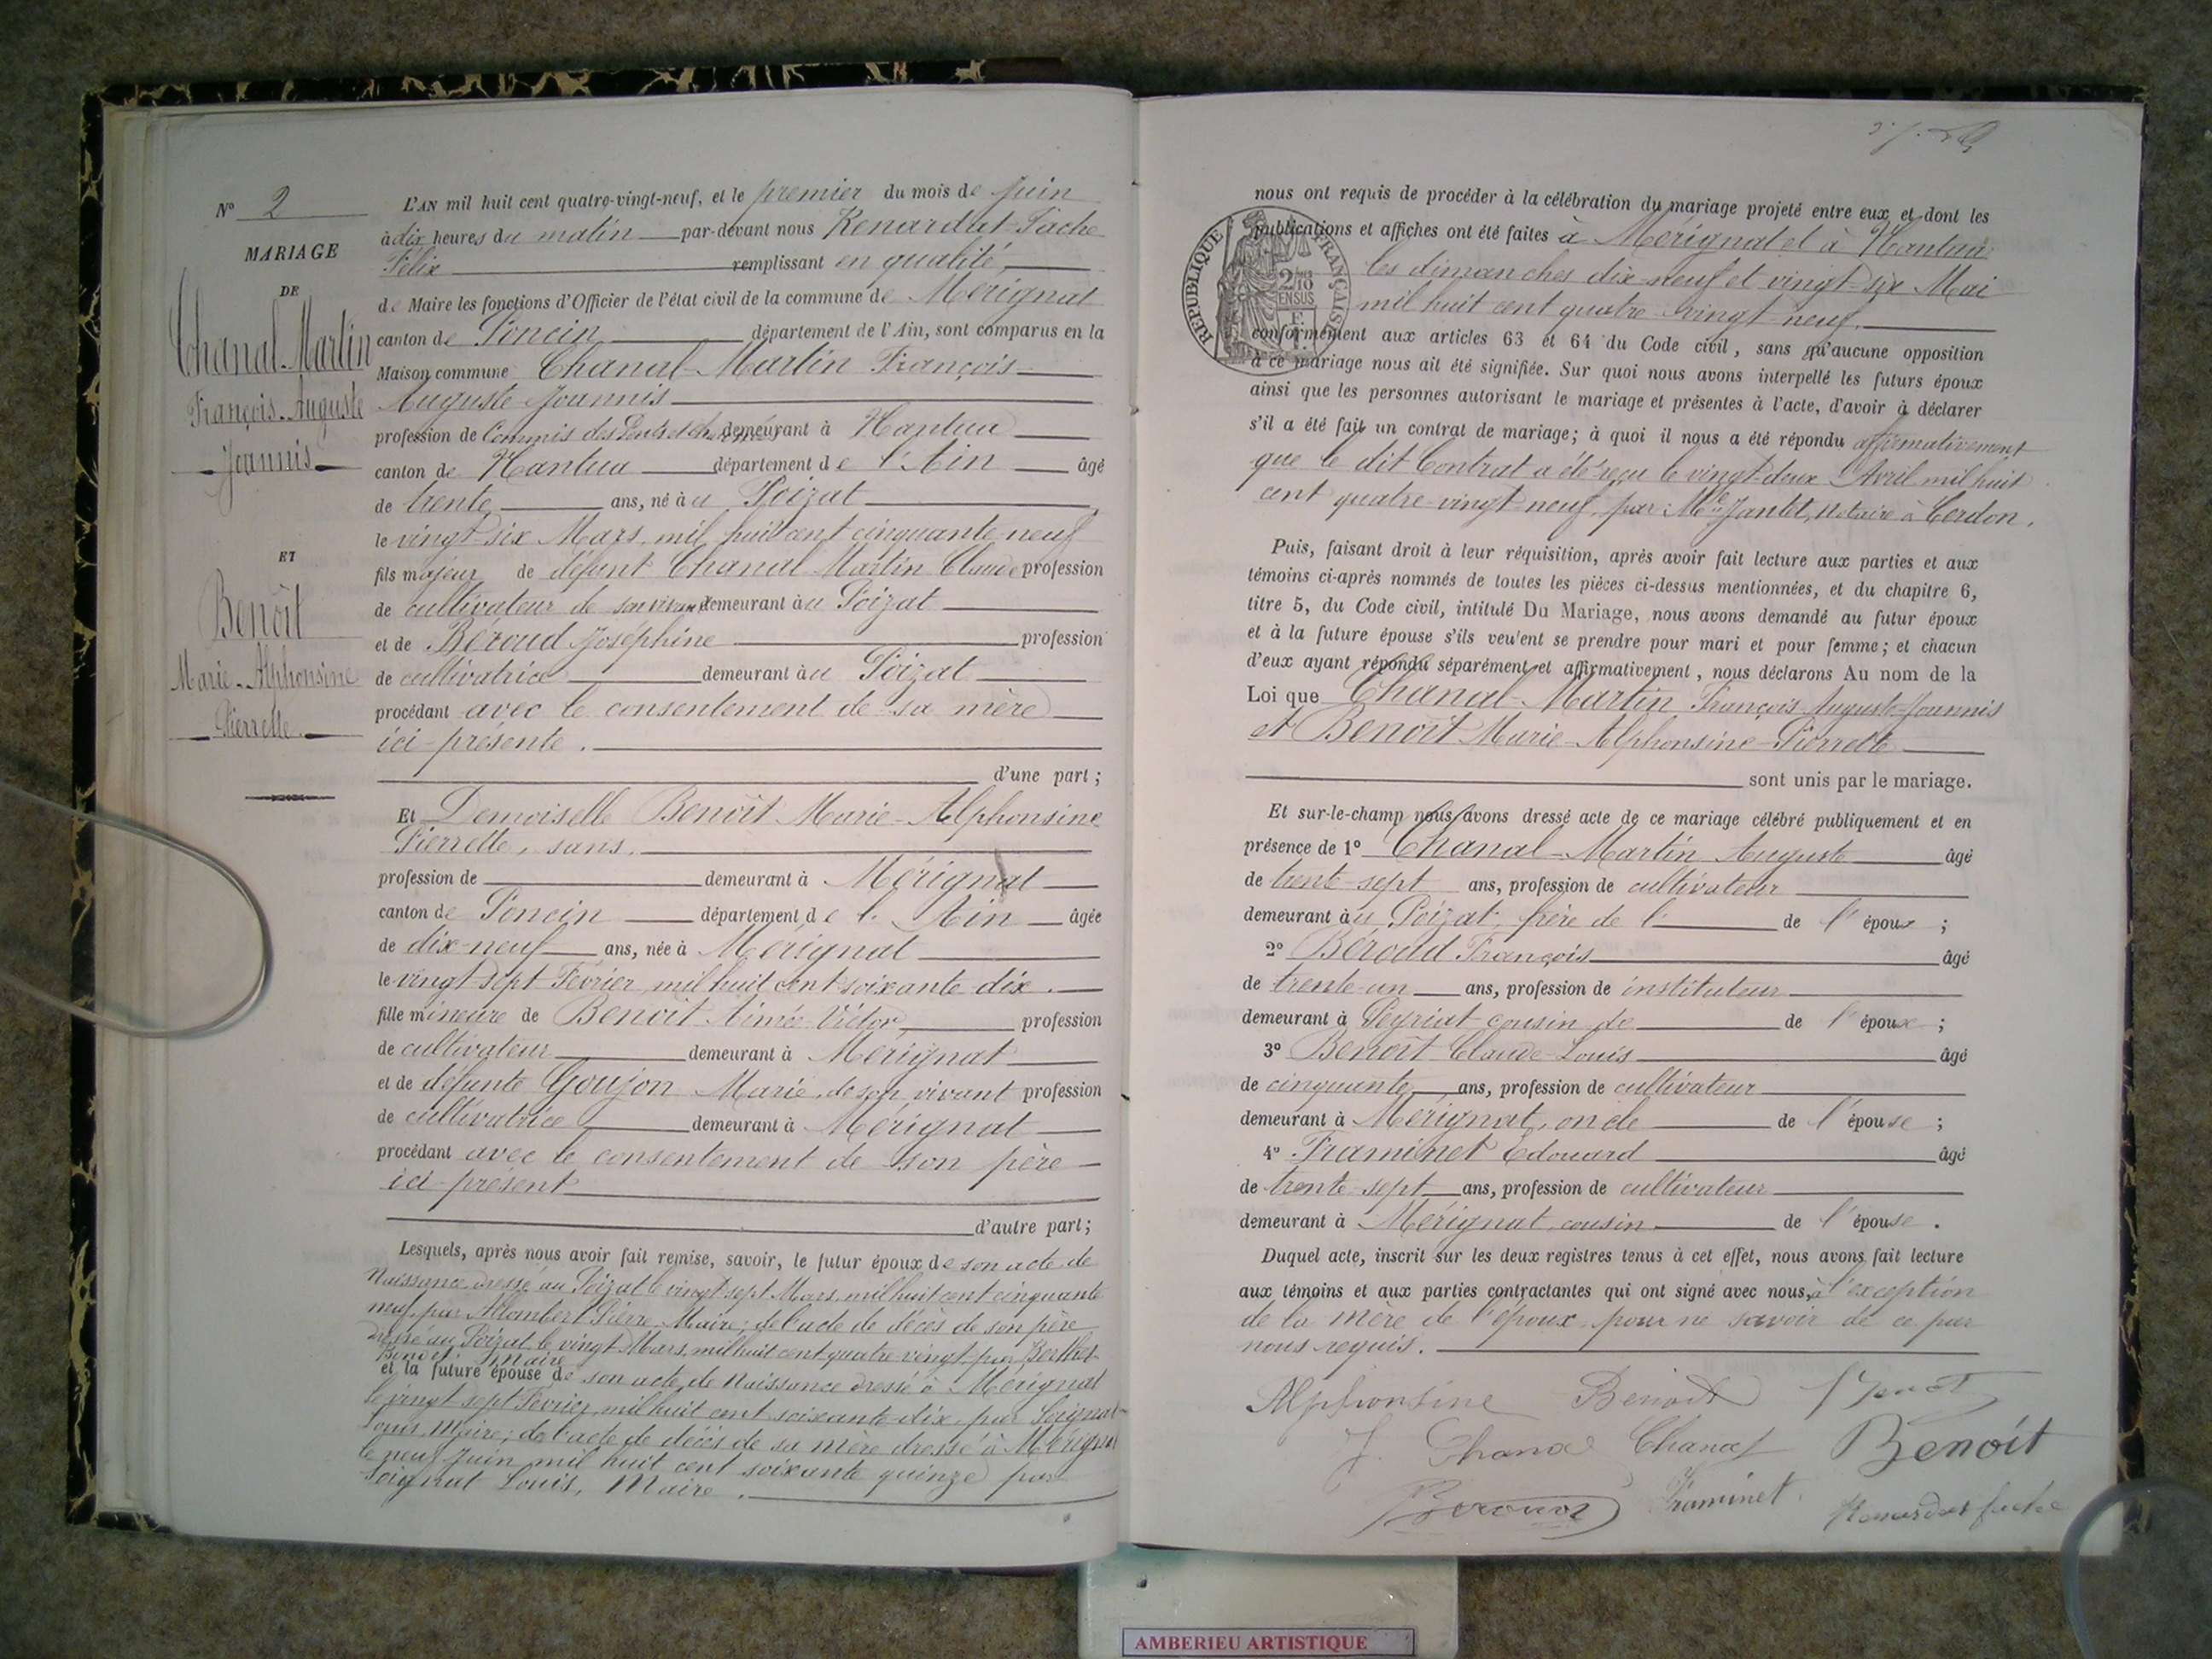 N° 2
MARIAGE
DE
Chanal-Martin
François-Auguste
Joannis
ET
Benoît
Marie-Alphonsine
Pierrette
L'AN mil huit cent quatre-vingt-neuf, et le premier du mois de Juin
à dix heures du matin par-devant nous Renardat-Fache
Félix remplissant en qualité
de Maire les fonctions d'Officier de l'état civil de la commune de Mérignat
canton de Poncin département de l'Ain, sont comparus en la
Maison commune Chanal-Martin François
Auguste Joannis
profession de Commis des Ponts et ch demeurant à Nantua
canton de Nantua département de l'Ain âgé
de trente ans, né au Poizat
le vingt-six Mars, mil huit cent cinquante neuf
fils majeur de défunt Chanal Martin Claude profession
de cultivateur de son vivant demeurant au Poizat
et de Béroud Joséphine profession
de cultivatrice demeurant au Poizat
procédant avec le consentement de sa mère
ici-présente.
d'une part;
Et Demoiselle Benoît Marie-Alphonsine
Pierrette, sans
profession de demeurant à Mérignat
canton de Poncin département de l'Ain âgée
de dix-neuf ans, née à Mérignat
le vingt-sept Février mil huit cent soixante-dix.
fille mineure de Benoît Aimé-Victor profession
de cultivateur demeurant à Mérignat
et de défunte Goujon Marie de son vivant profession
de cultivatrice demeurant à Mérignat
procédant avec le consentement de son père
ici-présent
d'autre part;
Lesquels, après nous avoir fait remise, savoir, le futur époux de son acte de
Naissance dressé au Poizat le vingt-sept Mars, mil huit cent cinquante
neuf, par Allombert Pierre Maire; de l'acte de décès de son père
dressé au Poizat le vingt Mars, mil huit cent quatre-vingt par Berthet
Benoît Maire
et la future épouse de son acte de Naissance dressé à Mérignat
le vingt sept Février, mil huit cent soixante-dix par Soignat
Louis Maire; de l'acte de décès de sa mère dressé à Mérignat
le neuf Juin mil huit cent soixante quinze par
Soignat Louis, Maire.
nous ont requis de procéder à la célébration du mariage projeté entre eux et dont les
publications et affiches ont été faites à Mérignat et à Nantua
les dimanches dix-neuf et vingt-six Mai
mil huit cent quatre-vingt-neuf.
RÉPUBLIQUE FRANÇAISE
2/10 EN SUS
conformément aux articles 63 et 64 du Code civil, sans qu'aucune opposition
à ce mariage nous ait été signifiée. Sur quoi nous avons interpellé les futurs époux
ainsi que les personnes autorisant le mariage et présentes à l'acte, d'avoir à déclarer
s'il a été fait un contrat de mariage; à quoi il nous a été répondu affirmativement
que le dit Contrat a été reçu le vingt-deux Avril mil huit
cent quatre-vingt-neuf, par Me Jantet, Notaire à Cerdon.
Puis, faisant droit à leur réquisition, après avoir fait lecture aux parties et aux
témoins ci-après nommés de toutes les pièces ci-dessus mentionnées, et du chapitre 6,
titre 5, du Code civil, intitulé Du Mariage, nous avons demandé au futur époux
et à la future épouse s'ils veu'ent se prendre pour mari et pour femme; et chacun
d'eux ayant répondu séparément et affirmativement, nous déclarons Au nom de la
Loi que Chanal-Martin François Auguste-Joannis
et Benoît Marie-Alphonsine-Pierrette
sont unis par le mariage.
Et sur-le-champ nous avons dressé acte de ce mariage célébré publiquement et en
présence de 1° Chanal-Martin Auguste âgé
de trente-sept ans, profession de cultivateur
demeurant au Poizat, frère de l' de l'époux;
2° Béroud François âgé
de trente-un ans, profession de instituteur
demeurant à Peyriat cousin de de l'époux;
3° Benoît Claude-Louis âgé
de cinquante ans, profession de cultivateur
demeurant à Mérignat, oncle de l'épouse;
4° Framinet Edouard âgé
de trente-sept ans, profession de cultivateur
demeurant à Mérignat, cousin de l'épouse.
Duquel acte, inscrit sur les deux registres tenus à cet effet, nous avons fait lecture
aux témoins et aux parties contractantes qui ont signé avec nous, à l'exception
de la mère de l'époux pour ne savoir de ce par
nous requis.
Alphonsine Benoit
J. Chanal Chanal Benoît
Béroud Framinet Renardat fache
AMBERIEU ARTISTIQUE